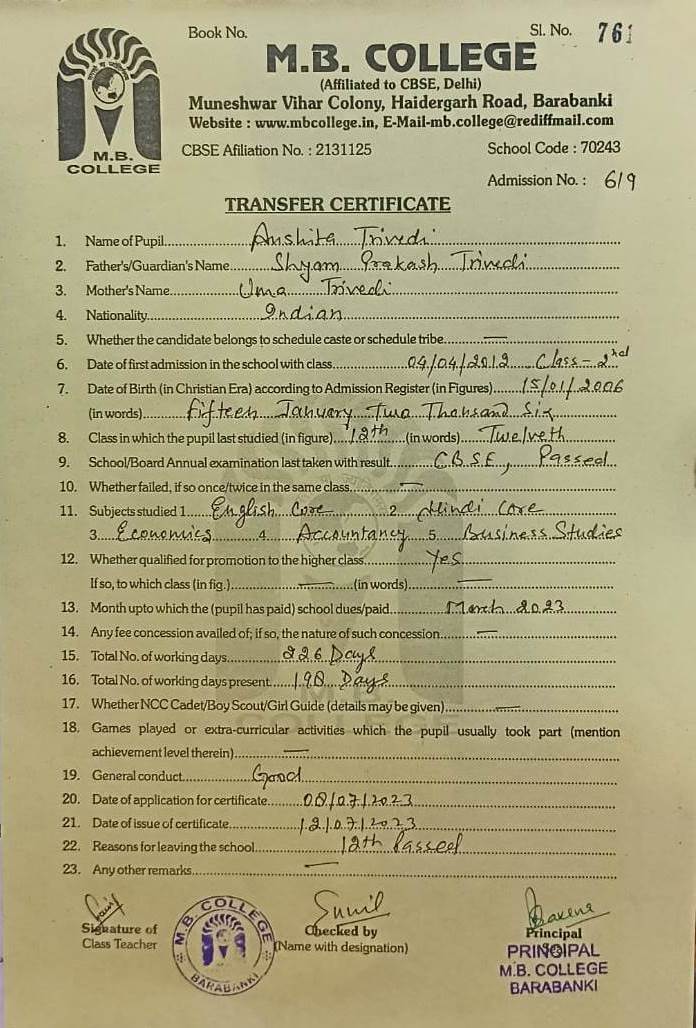 Book No.
Sl. No. 761
M.B. COLLEGE
(Affiliated to CBSE, Delhi)
Muneshwar Vihar Colony, Haidergarh Road, Barabanki
Website : www.mbcollege.in, E-Mail-mb.college@rediffmail.com
M.B.
COLLEGE
CBSE Afiliation No. : 2131125
School Code : 70243
Admission No. : 619
TRANSFER CERTIFICATE
1. Name of Pupil Anshita Trivedi
2. Father's/Guardian's Name Shyam Prakash Trivedi
3. Mother's Name Uma Trivedi
4. Nationality Indian
5. Whether the candidate belongs to schedule caste or schedule tribe —
6. Date of first admission in the school with class 04/04/2012 Class - 2nd
7. Date of Birth (in Christian Era) according to Admission Register (in Figures) 15/01/2006
(in words) Fifteen January Two Thousand Six
8. Class in which the pupil last studied (in figure) 12th (in words) Twelveth
9. School/Board Annual examination last taken with result CBSE, Passed
10. Whether failed, if so once/twice in the same class —
11. Subjects studied 1 English Core 2 Hindi Core
3 Economics 4 Accountancy 5 Business Studies
12. Whether qualified for promotion to the higher class Yes
If so, to which class (in fig.) — (in words) —
13. Month upto which the (pupil has paid) school dues/paid March 2023
14. Any fee concession availed of; if so, the nature of such concession —
15. Total No. of working days 226 Days
16. Total No. of working days present 198 Days
17. Whether NCC Cadet/Boy Scout/Girl Guide (details may be given) —
18. Games played or extra-curricular activities which the pupil usually took part (mention
achievement level therein) —
19. General conduct Good
20. Date of application for certificate 08/07/2023
21. Date of issue of certificate 12/07/2023
22. Reasons for leaving the school 12th Passed
23. Any other remarks —
Sunil
Signature of
Class Teacher
M.B. COLLEGE
BARABANKI
Checked by
(Name with designation)
Principal
PRINCIPAL
M.B. COLLEGE
BARABANKI